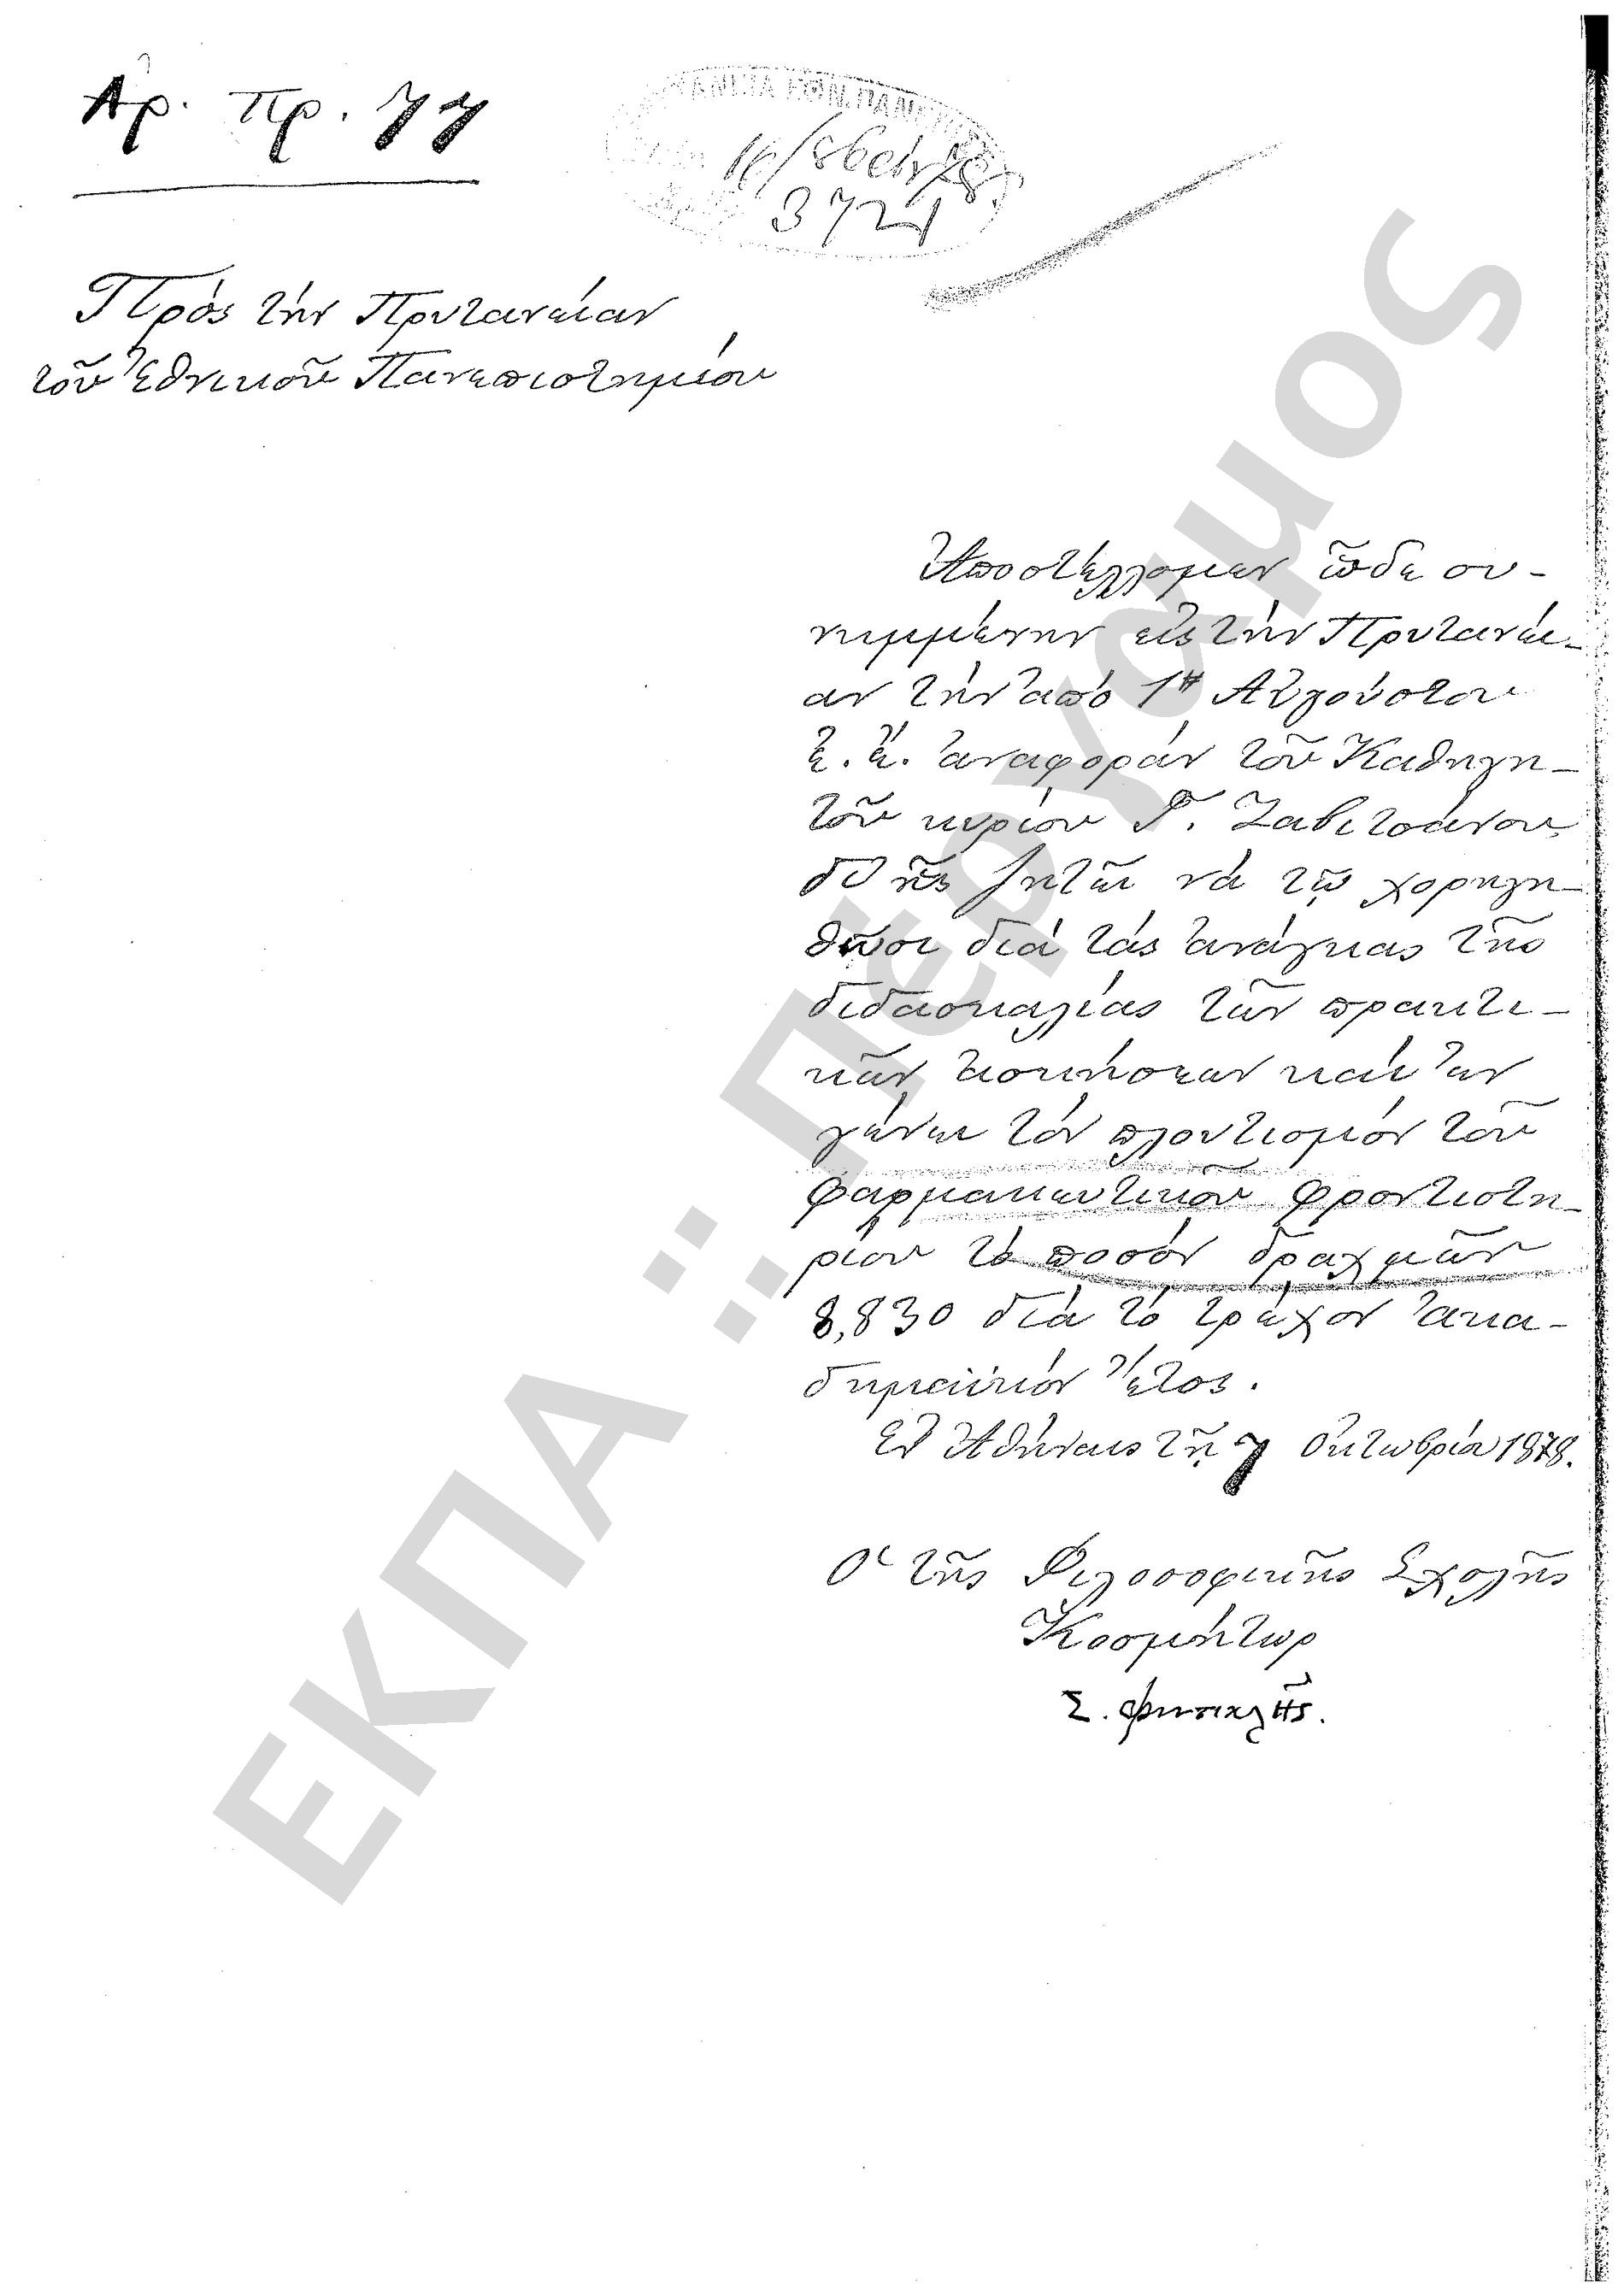 Ἀρ. πρ. 77
ΠΡΥΤΑΝΕΙΑ ΕΘΝ. ΠΑΝΕΠΙΣΤ
16/8βρ 78
3721
Πρὸς τὴν Πρυτανείαν
τοῦ Ἐθνικοῦ Πανεπιστημίου
Ἀποστέλλομεν ὧδε συ-
νημμένην εἰς τὴν Πρυτανεί-
αν τὴν ἀπὸ 1ης Αὐγούστου
ἐ. ἔ. ἀναφορὰν τοῦ Καθηγη-
τοῦ κυρίου Γ. Ζαβιτσάνου,
δι' ἧς ζητεῖ νὰ τῷ χορηγη-
θῶσι διὰ τὰς ἀνάγκας τῆς
διδασκαλίας τῶν πρακτι-
κῶν ἀσκήσεων καὶ ἐν
γένει τὸν πλουτισμὸν τοῦ
φαρμακευτικοῦ φροντιστη-
ρίου τὸ ποσὸν δραχμῶν
8,830 διὰ τὸ τρέχον ἀκα-
δημαϊκὸν ἔτος.
Ἐν Ἀθήναις τῇ 7 Ὀκτωβρίου 1878.
Ὁ τῆς Φιλοσοφικῆς Σχολῆς
Κοσμήτωρ
Σ. Φιντικλῆς.
ΕΚΠΑ :: Πέργαμος